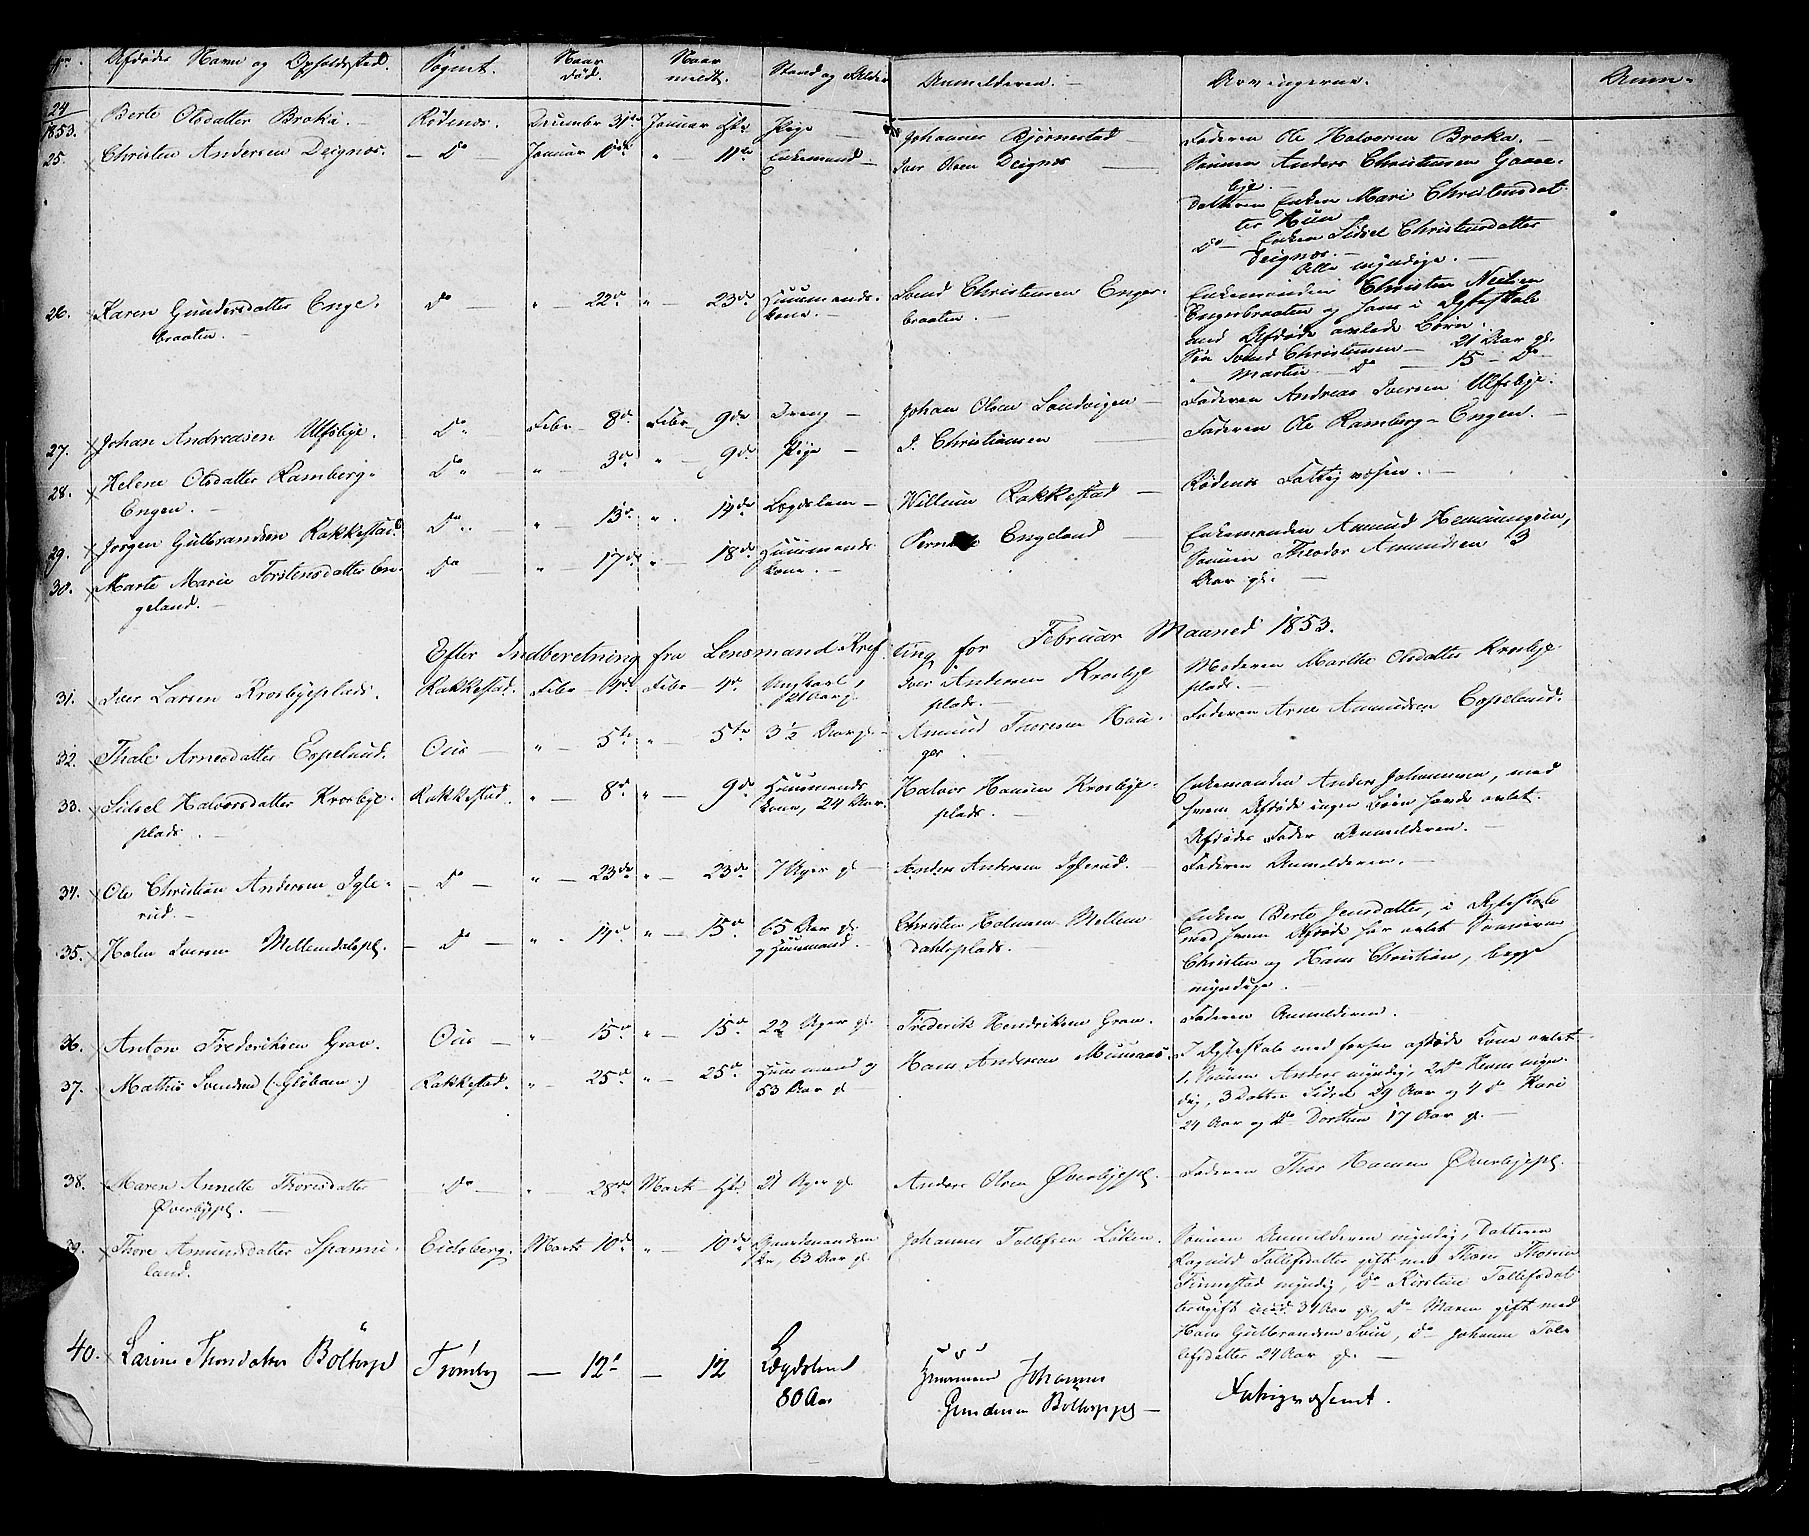 Afdødes Navn og Opholdssted. Sogent. Naar død. Naar meldt. Stand og Alder Anmelderen. — Arvingerne. Anm.
24/1853. Berte Olsdatter Broka. — Rødenæs. December 31te Januar 4de Pige — Johannes Bjørnestad — Faderen Ole Halvorsen Broka. —
25. Christen Andersen Deignæs. — Do — Januar 10de " — 11te Enkemand — Iver Olsen Deignæs — Sønnen Anders Christensen Gaase-
bye. —
Datteren Enken Mari Christensdat-
ter Huun
Do — Enken Sidsel Christensdatter
Deignæs. —
Alle myndige. —
26. Karen Gundersdatter Enge- Do — " — 22de " — 23de Huusmands- Svend Christensen Enger- Enkemanden Christen Nielsen
braaten. — kone. — braaten. — Engerbraaten og hans i Ægteskab
med Afdøde avlede Børn:
Søn Svend Christensen — 21 Aar gl.
" Martin — Do — 15 — Do —
27. Johan Andreasen Ulfsbye. Do " Febr — 8de Febr — 9de Dreng — Johan Olsen Sandvigen — Faderen Andreas Iversen Ulfsbye.
28. Helene Olsdatter Ramberg- Do " — " — 3de " — 9de Pige — I. Christiansen — Faderen Ole Ramberg-Engen. —
Engen. —
29. Jørgen Gulbrandsen Rakkestad. Do " — " — 13de " — 14de Lægdslem — Willum Rakkestad — Rødenæs Fattigvæsen. —
30. Marte Marie Torstensdatter En- Do — " — 17de " — 18de Huusmands- Engeland — Enkemanden Amund Hemmingsen,
geland. — kone. — Sønnen Theodor Amundsen 3
Aar gl. —
Efter Indberetning fra Lensmand Kref-
ting for Februar Maaned 1853.
31. Iver Larsen Krosbyeplads. Rakkestad. Febr — Febr — 4de Ungkarl, Iver Andersen Krosbye- Moderen Marthe Olsdatter Krosbye-
plads. — plads. —
32. Thale Arnesdatter Espelund. Øiis — " — 5te " — 5te 3½ Aar gl — Amund Toresen Hau- Faderen Arne Amundsen Espelund.
ger. —
33. Sidsel Halvorsdatter Krosbye- Rakkestad. " — 8de " — 9de Huusmands- Halvor Hansen Krosbye- Enkemanden Anders Johannesen, med
plads. — kone, 24 Aar. plads. — hvem Afdøde ingen Børn havde avlet.
Afdødes Fader Anmelderen. —
34. Ole Christian Andersen Igle- — Do — " — 23de " — 23de 7 Uger gl — Anders Andersen Iglerud. Faderen Anmelderen. —
rud. —
35. Holm Iversen Mellemdalspl. — Do — " — 14de " — 15de 65 Aar gl. Christen Holmsen Mellem- Enken Berte Jensdatter, i Ægteskab
Huusmand. dahlsplads. med hvem Afdøde har avlet Sønnerne
Christen og Hans Christian, begge
myndige. —
36. Anton Frederiksen Grav. Øiis — " — 15de " — 15de 22 Uger gl. Frederik Hendriksen Grav. Faderen Anmelderen. —
37. Mathis Svendsen (Gløbaen) Rakkestad. " — 25de " — 25de Huusmand og Hans Andersen I Ægteskab med forhen afdøde Kone avlet
53 Aar gl 1. Sønnen Anders myndig, 2 Do myn-
dig, 3 Datter Sidsel 29 Aar og 4 Do Kari
24 Aar og Do Dorthea 17 Aar gl. —
38. Maren Annette Thoresdatter Do — " — 28de Marts 4de 21 Uger gl. Anders Olsen Øverbyepl. Faderen Thor Hansen Øverbyepl.
Øverbyepl. —
39. Thore Amundsdatter Spanne- Eidsberg. Marts 10de " — 10de Gaardmands- Johannes Tollefsen Løken. Sønnen Anmelderen myndig, Datteren
land. 63 Aar gl Ragnild Tollefsdatter gift med Thore
myndig, Do Kirstine Tollefsdat-
ter ugift 31 Aar gl, Do Maren gift med
Hans Gulbrandsen Do Johanne Tol-
lefsdatter 24 Aar gl. —
40. Larine Thorsdatter Böltorp Trømborg — 12te — 12 Lægdslem Huusmand Johannes Fattigvæsenet.
80 Aar Gundersen Böltorppl —